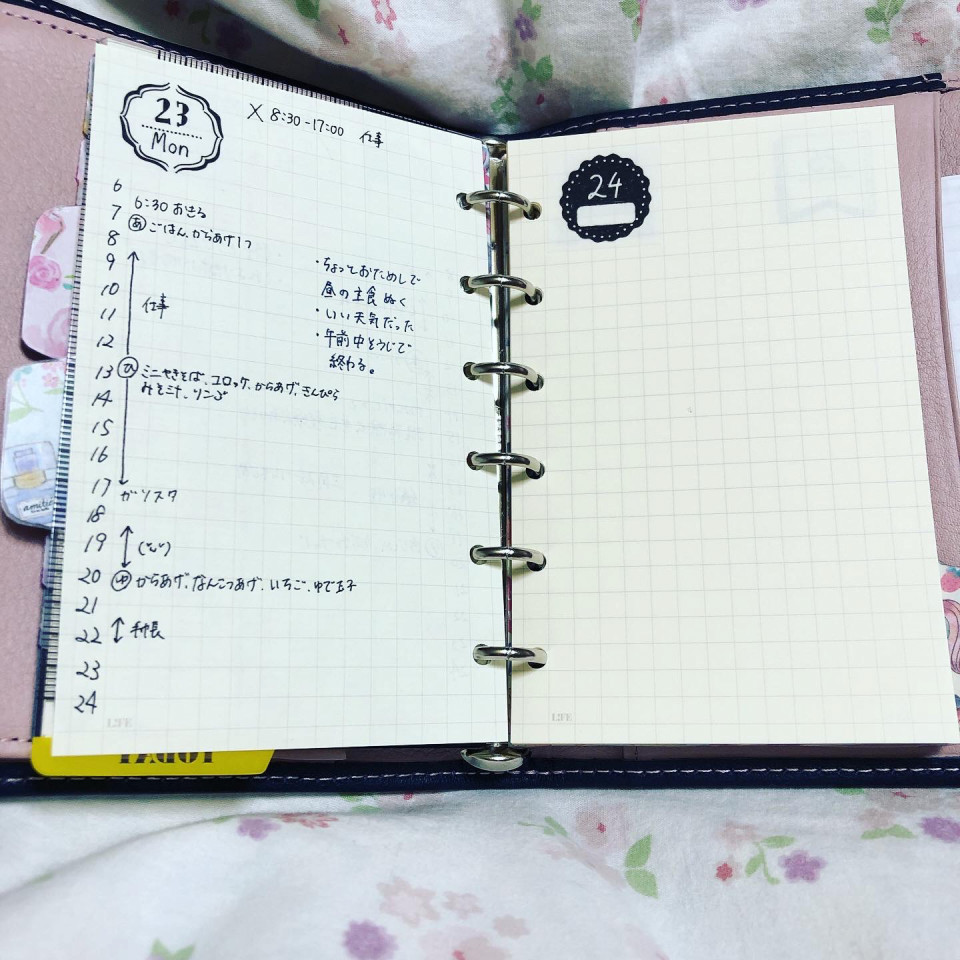 23
Mon
X 8:30-17:00 仕事
6
6:30 おきる
7
あ ごはん、からあげ1つ
8
9
10
仕事
11
12
・ちょっとおためしで
昼の主食ぬく
・いい天気だった
・午前中そうじで
終わる。
13 ひ ミニやきそば、コロッケ、からあげ、きんぴら
みそ汁、リンゴ
14
15
16
17 ガソスタ
18
19
20 ゆ からあげ、なんこつあげ、いちご、ゆで玉子
21
22 手帳
23
24
LIFE
TODAY
amitie
24
LIFE